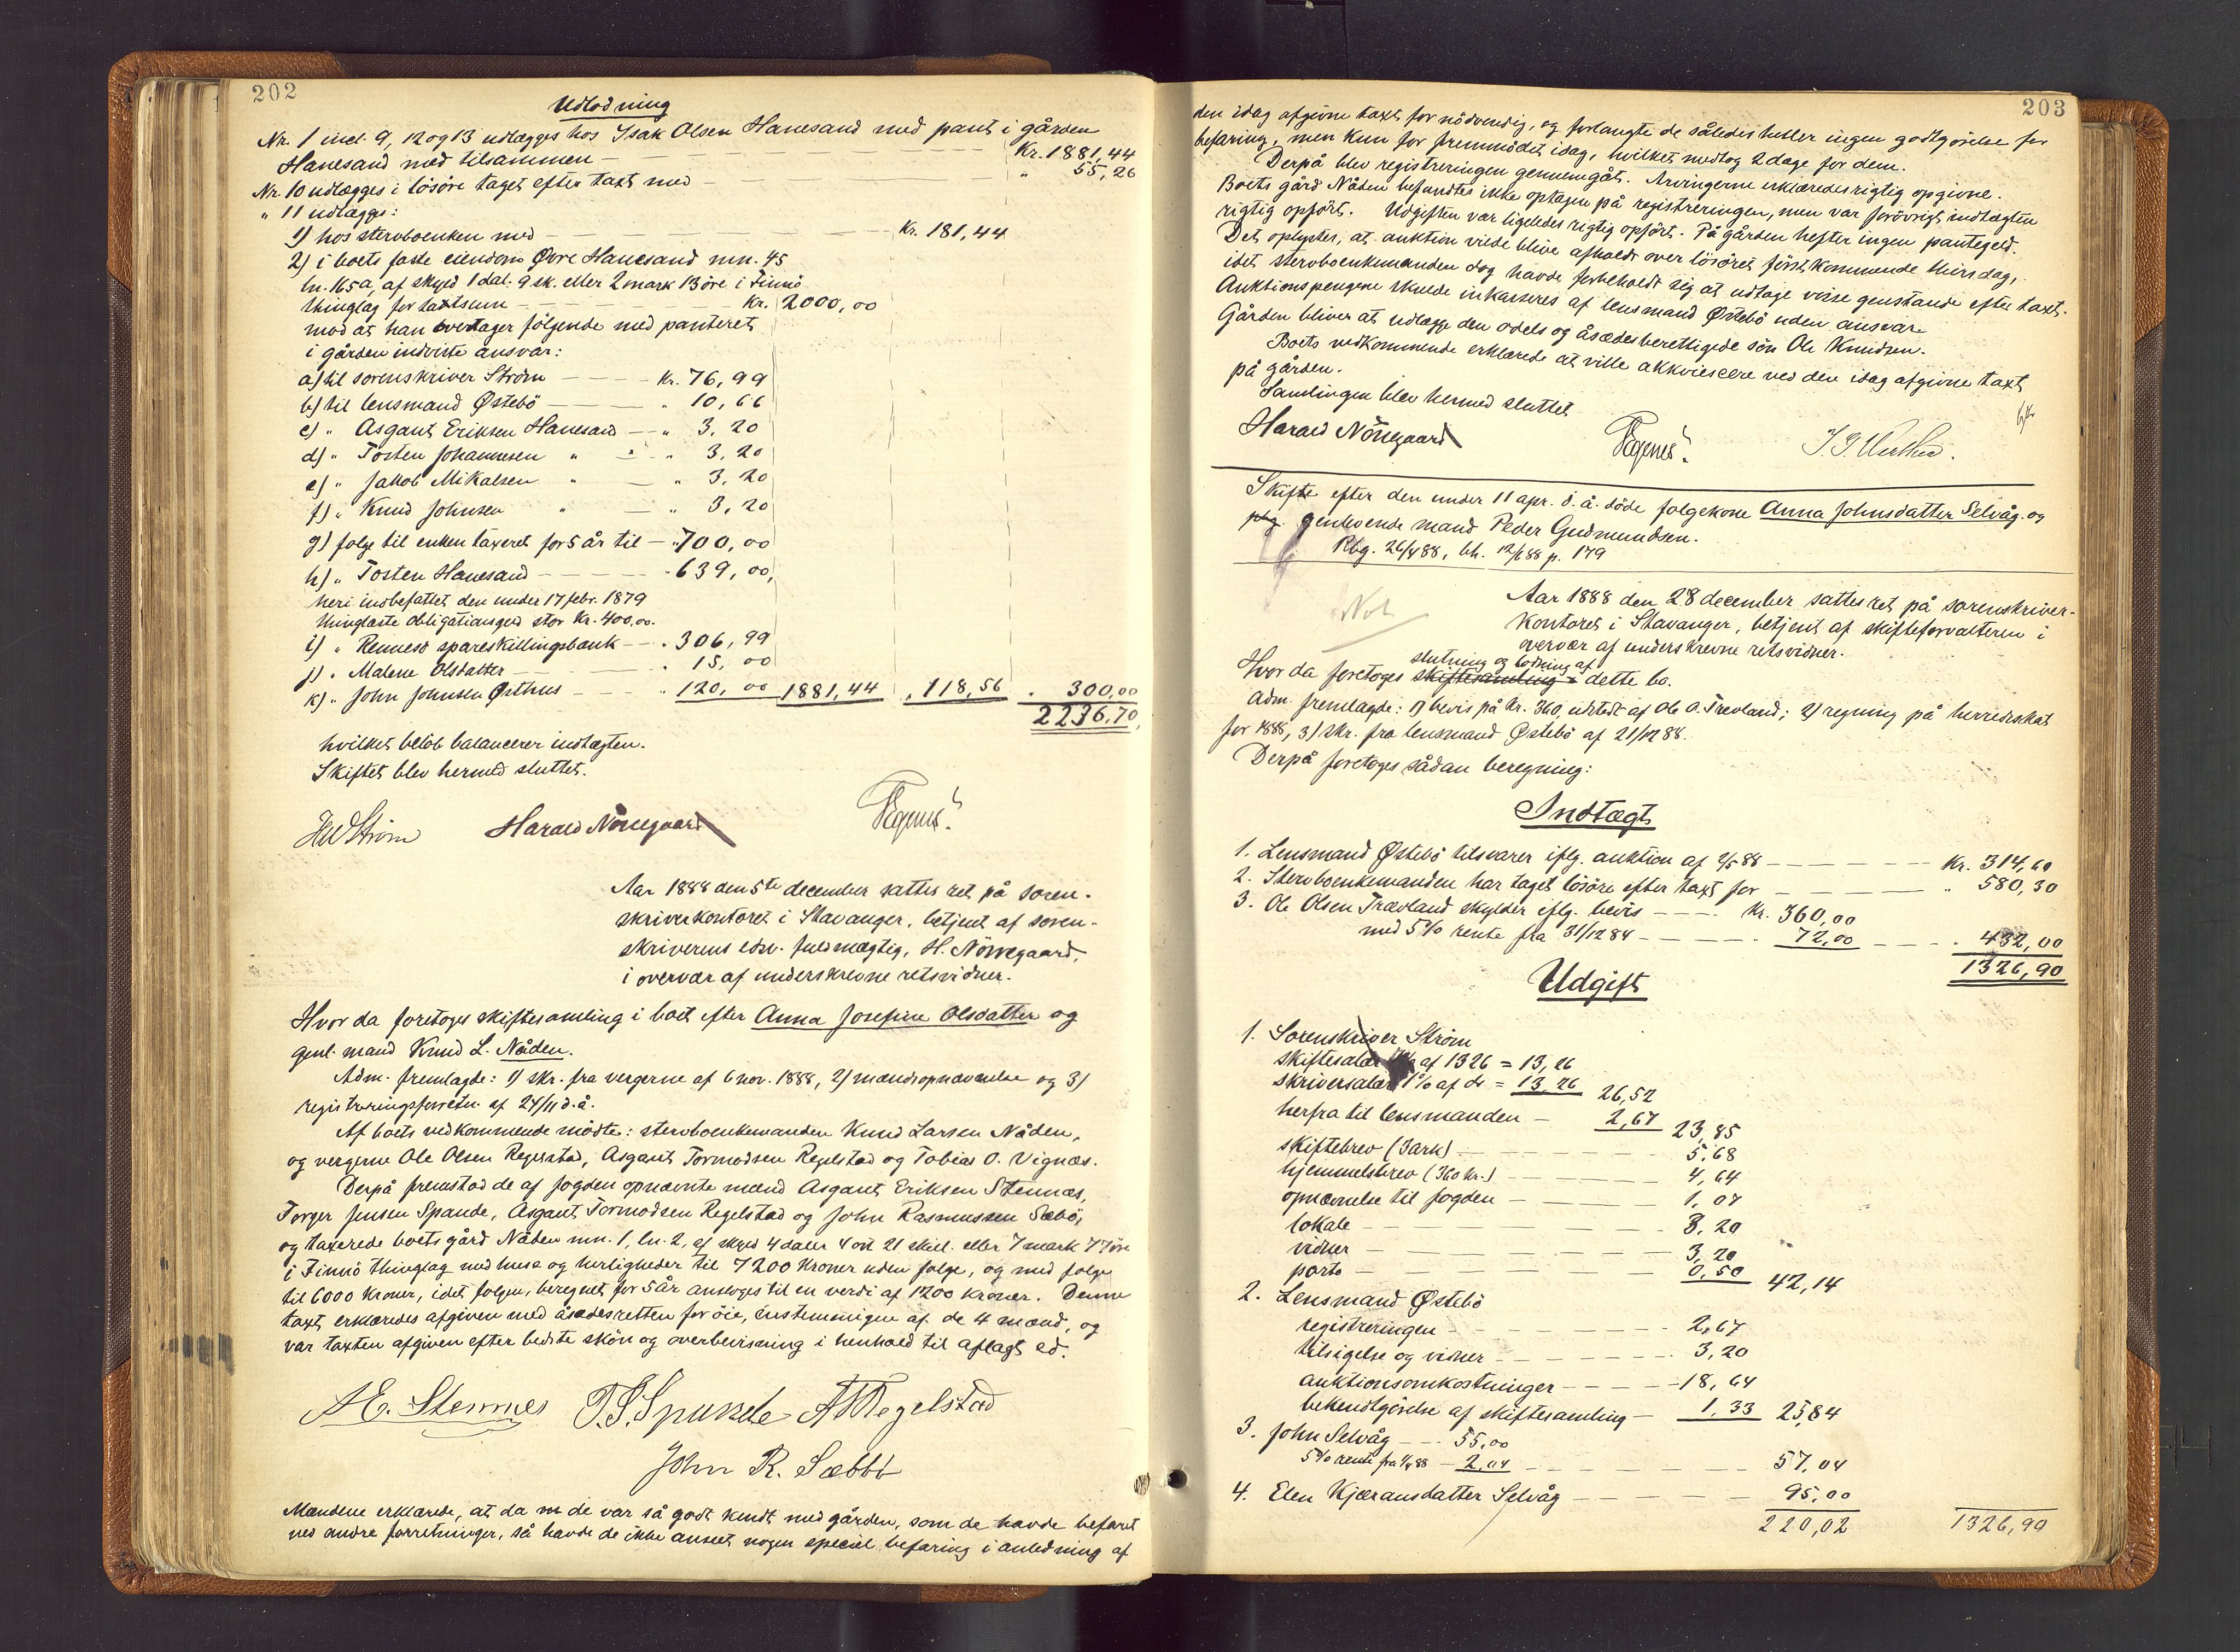 202
Udlodning
Nr. 1 incl. 9, 12 og 13 udlægges hos Isak Olsen Hanesand med pant i gården
Hanesand med tilsammen — Kr. 1881,44
Nr. 10 udlægges i lösöre taget efter taxt med — " 55,26
" 11 udlægges:
1) hos stervboenken med — Kr. 181,44
2) i boets faste eiendom Øvre Hanesand mn. 45
ln. 165a, af skyld 1 dal. 9 sk. eller 2 mark 13 öre i Finnö
thinglag for taxtsum — Kr. 2000,00
mod at han overtager fölgende med panteret
i gården indviste ansvar:
a) til sorenskriver Ström — Kr. 76,99
b) til lensmand Østebö — " 10,66
c) " Asgaut Eriksen Hanesand — " 3,20
d) " Tosten Johannesen " — " 3,20
e) " Jakob Mikalsen " — " 3,20
f) " Knud Johnsen " — " 3,20
g) folge til enken taxeret for 5 år til — " 700,00
h) " Tosten Hanesand — " 639,00
heri indbefattet den under 17 febr. 1879
thinglæste obligationsgjeld stor Kr. 400,00.
i) " Rennesö spareskillingsbank — " 306,99
j) " Malene Olsdatter — " 15,00
k) " John Johnsen Østhus — " 120,00 1881,44 " 118,56 " 300,00
2236,70
hvilket belöb balancerer indtægten.
Skiftet blev hermed sluttet.
HW Ström Harald Nörregaard
Aar 1888 den 5te december sattes ret på soren-
skriverkontoret i Stavanger, betjent af soren-
skriverens edsv. fuldmægtig, H. Nörregaard,
i overvær af underskrevne retsvidner.
Hvor da foretoges skiftesamling i boet efter Anna Josefine Olsdatter og
genl. mand Knud L. Nåden.
Adm. fremlagde: 1) skr. fra vergerne af 6 nov. 1888, 2) mandsopnævnelse og 3)
registreringsforretn. af 24/11 d.å.
Af boets vedkommende mödte: stervboenkemanden Knud Larsen Nåden,
og vergerne Ole Olsen Regelstad, Asgaut Tormodsen Regelstad og Tobias O. Vignæs.
Derpå fremstod de af fogden opnævnte mænd Asgaut Eriksen Stennæs,
Torger Jensen Spande, Asgaut Tormodsen Regelstad og John Rasmussen Sæbö,
og taxerede boets gård Nåden mn. 1, ln. 2, af skyld 4 daler 4 ort 21 skill. eller 7 mark 77 öre
i Finnö thinglag med huse og herligheder til 7200 kroner uden folge, og med folge
til 6000 kroner, idet folgen, beregnet for 5 år ansloges til en verdi af 1200 kroner. Denne
taxt erklæredes afgiven med åsædesretten for öie, enstemmigen af de 4 mænd, og
var taxten afgiven efter bedste skön og overbevisning i henhold til aflagt ed.
A E. Stennes T. J. Spande A T Regelstad
John R. Sæbbö
Mændene erklærede, at da de var så godt kendt med gården, som de havde befaret
ved andre forretninger, så havde de ikke anseet nogen speciel befaring i anledning af
203
den idag afgivne taxt for nödvendig, og forlangte de således heller ingen godtgörelse for
befaring, men kun for fremmödet idag, hvilket medtog 2 dage for dem.
Derpå blev registreringen gennemgåt. Arvingerne erklæredes rigtig opgivne.
Boets gård Nåden befandtes ikke optagen på registreringen, men var forövrigt indtægten
rigtig opfört. Udgiften var ligeledes rigtig opfört. På gården hefter ingen pantegeld.
Det oplystes, at auktion vilde blive afholdt over lösöret förstkommende thirsdag,
idet stervboenkemanden dog havde forbeholdt sig at udtage visse genstande efter taxt.
Auktionspengene skulde inkasseres af lensmand Østebö uden ansvar.
Gården bliver at udlægge den odels og åsædesberettigede sön Ole Knudsen.
Boets vedkommende erklærede at ville akkviescere ved den idag afgivne taxt
på gården.
Samlingen blev hermed sluttet
Harald Nörregaard
Skifte efter den under 11 apr. d. å. döde folgekone Anna Johnsdatter Selvåg og
genlevende mand Peder Gudmundsen.
Rbg. 26/4 88, bh. 12/6 88 p. 179
Aar 1888 den 28 december sattes ret på sorenskriver-
kontoret i Stavanger, betjent af skifteforvalteren i
overvær af underskrevne retsvidner.
slutning og lodning af
Hvor da foretoges skiftesamling i dette bo.
Adm. fremlagde: 1) bevis på Kr. 360, udstedt af Ole O. Trævland; 2) regning på herredsskat
for 1888, 3) skr. fra lensmand Østebö af 21/12 88.
Derpå foretoges sådan beregning:
Indtægt
1. Lensmand Østebö tilsvarer iflg. auktion af 2/5 88 — Kr. 314,60
2. Stervboenkemanden har taget lösöre efter taxt for — " 580,30
3. Ole Olsen Trævland skylder iflg. bevis — Kr. 360,00
med 5% rente fra 31/12 84 — 72,00 — " 432,00
1326,90
Udgift
1. Sorenskriver Ström
skiftesalær af 1326 = 13,26
skriversalær 1% af do = 13,26 26,52
herfra til lensmanden — 2,67 23,85
skiftebrev (3 ark) — 5,68
hjemmelsbrev (360 kr.) — 4,64
opnævnelse til fogden — 1,07
lokale — 3,20
vidner — 3,20
porto — 0,50 42,14
2. Lensmand Østebö
registreringen — 2,67
tilsigelse og vidner — 3,20
auktionsomkostninger — 18,64
bekendtgörelse af skiftesamling — 1,33 25,84
3. John Selvåg — 55,00
5% rente fra 1/4 88 — 2,04 — 57,04
4. Elen Kjæransdatter Selvåg — 95,00
220,02 1326,90